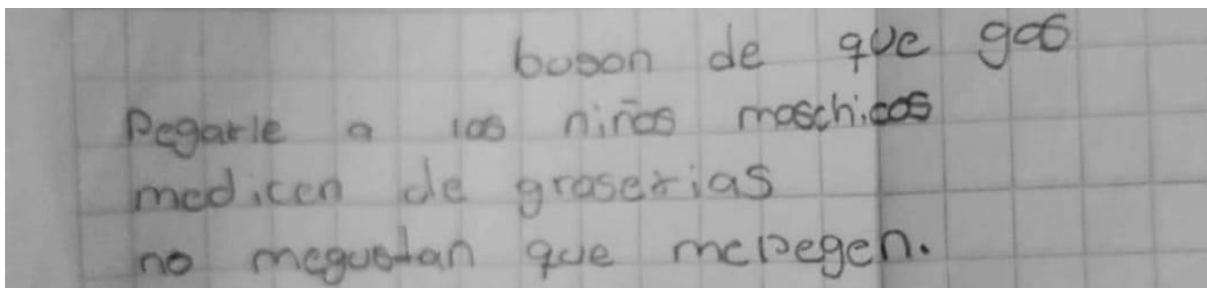 buson de que gas
Pegarle a los niños maschicos
medicen de groserias
no megustan que mepegen.